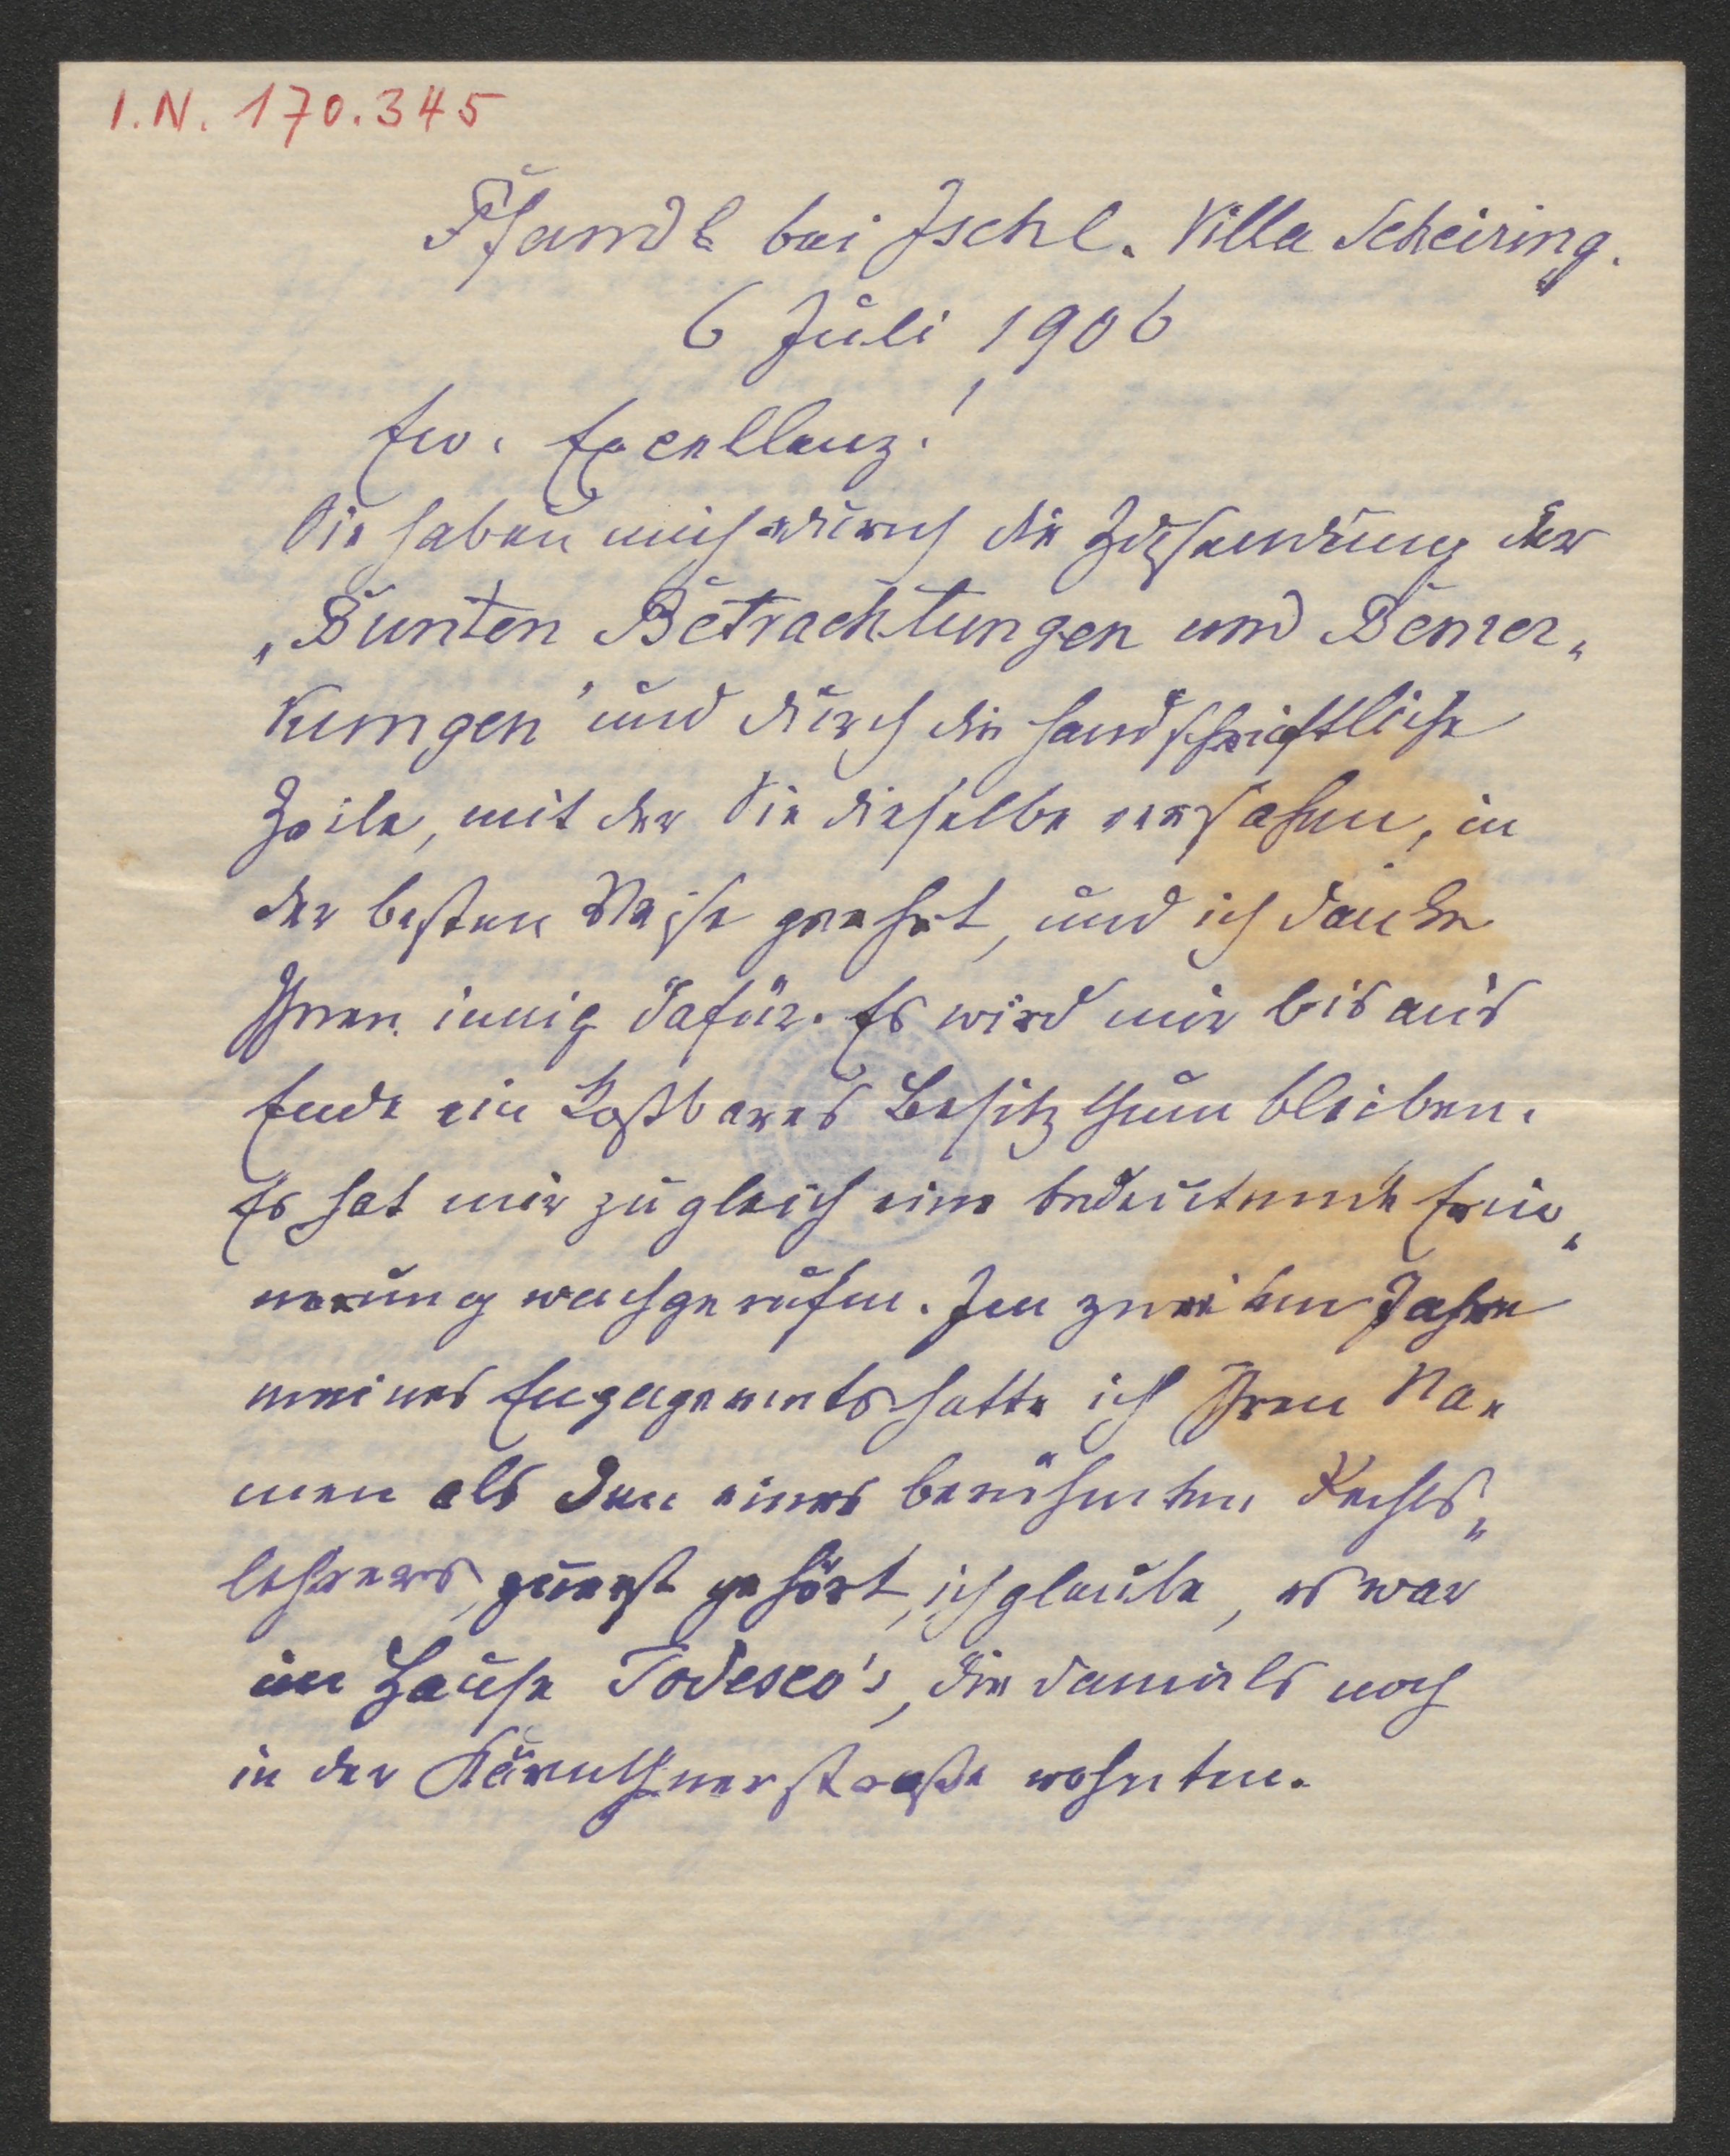 I.N. 170.345
Pfandl bei Ischl. Villa Scheiring.
6 Juli 1906
Ew. Excellenz!
Sie haben mich durch die Zusendung der
„Bunten Betrachtungen und Bemer„
kungen" und durch die handschriftliche
Zeile, mit der Sie dieselbe versahen, in
der besten Weise geehrt, und ich danke
Ihnen innig dafür. Es wird mir bis ans
Ende ein kostbares Besitzthum bleiben.
Es hat mir zugleich eine bedeutende Erin„
nerung wachgerufen. Im zweiten Jahre
meines Engagements hatte ich Ihren Na„
men als den eines berühmten Rechts„
lehrers, zuerst gehört, ich glaube, es war
im Hause Todesco's, die damals noch
in der Kärnthnerstraße wohnten.